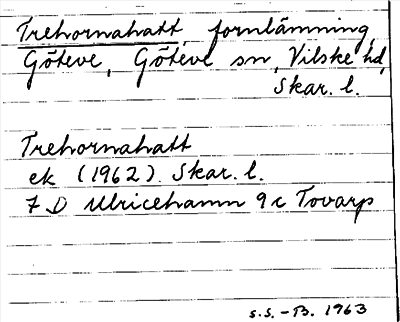 Trehornahatt, fornlämning,
Göteve, Göteve sn, Vilske hd,
Skar. l.
Trehornahatt
ek (1962). Skar. l.
7 D Ulricehamn 9 c Tovarp
S.S. - B. 1963